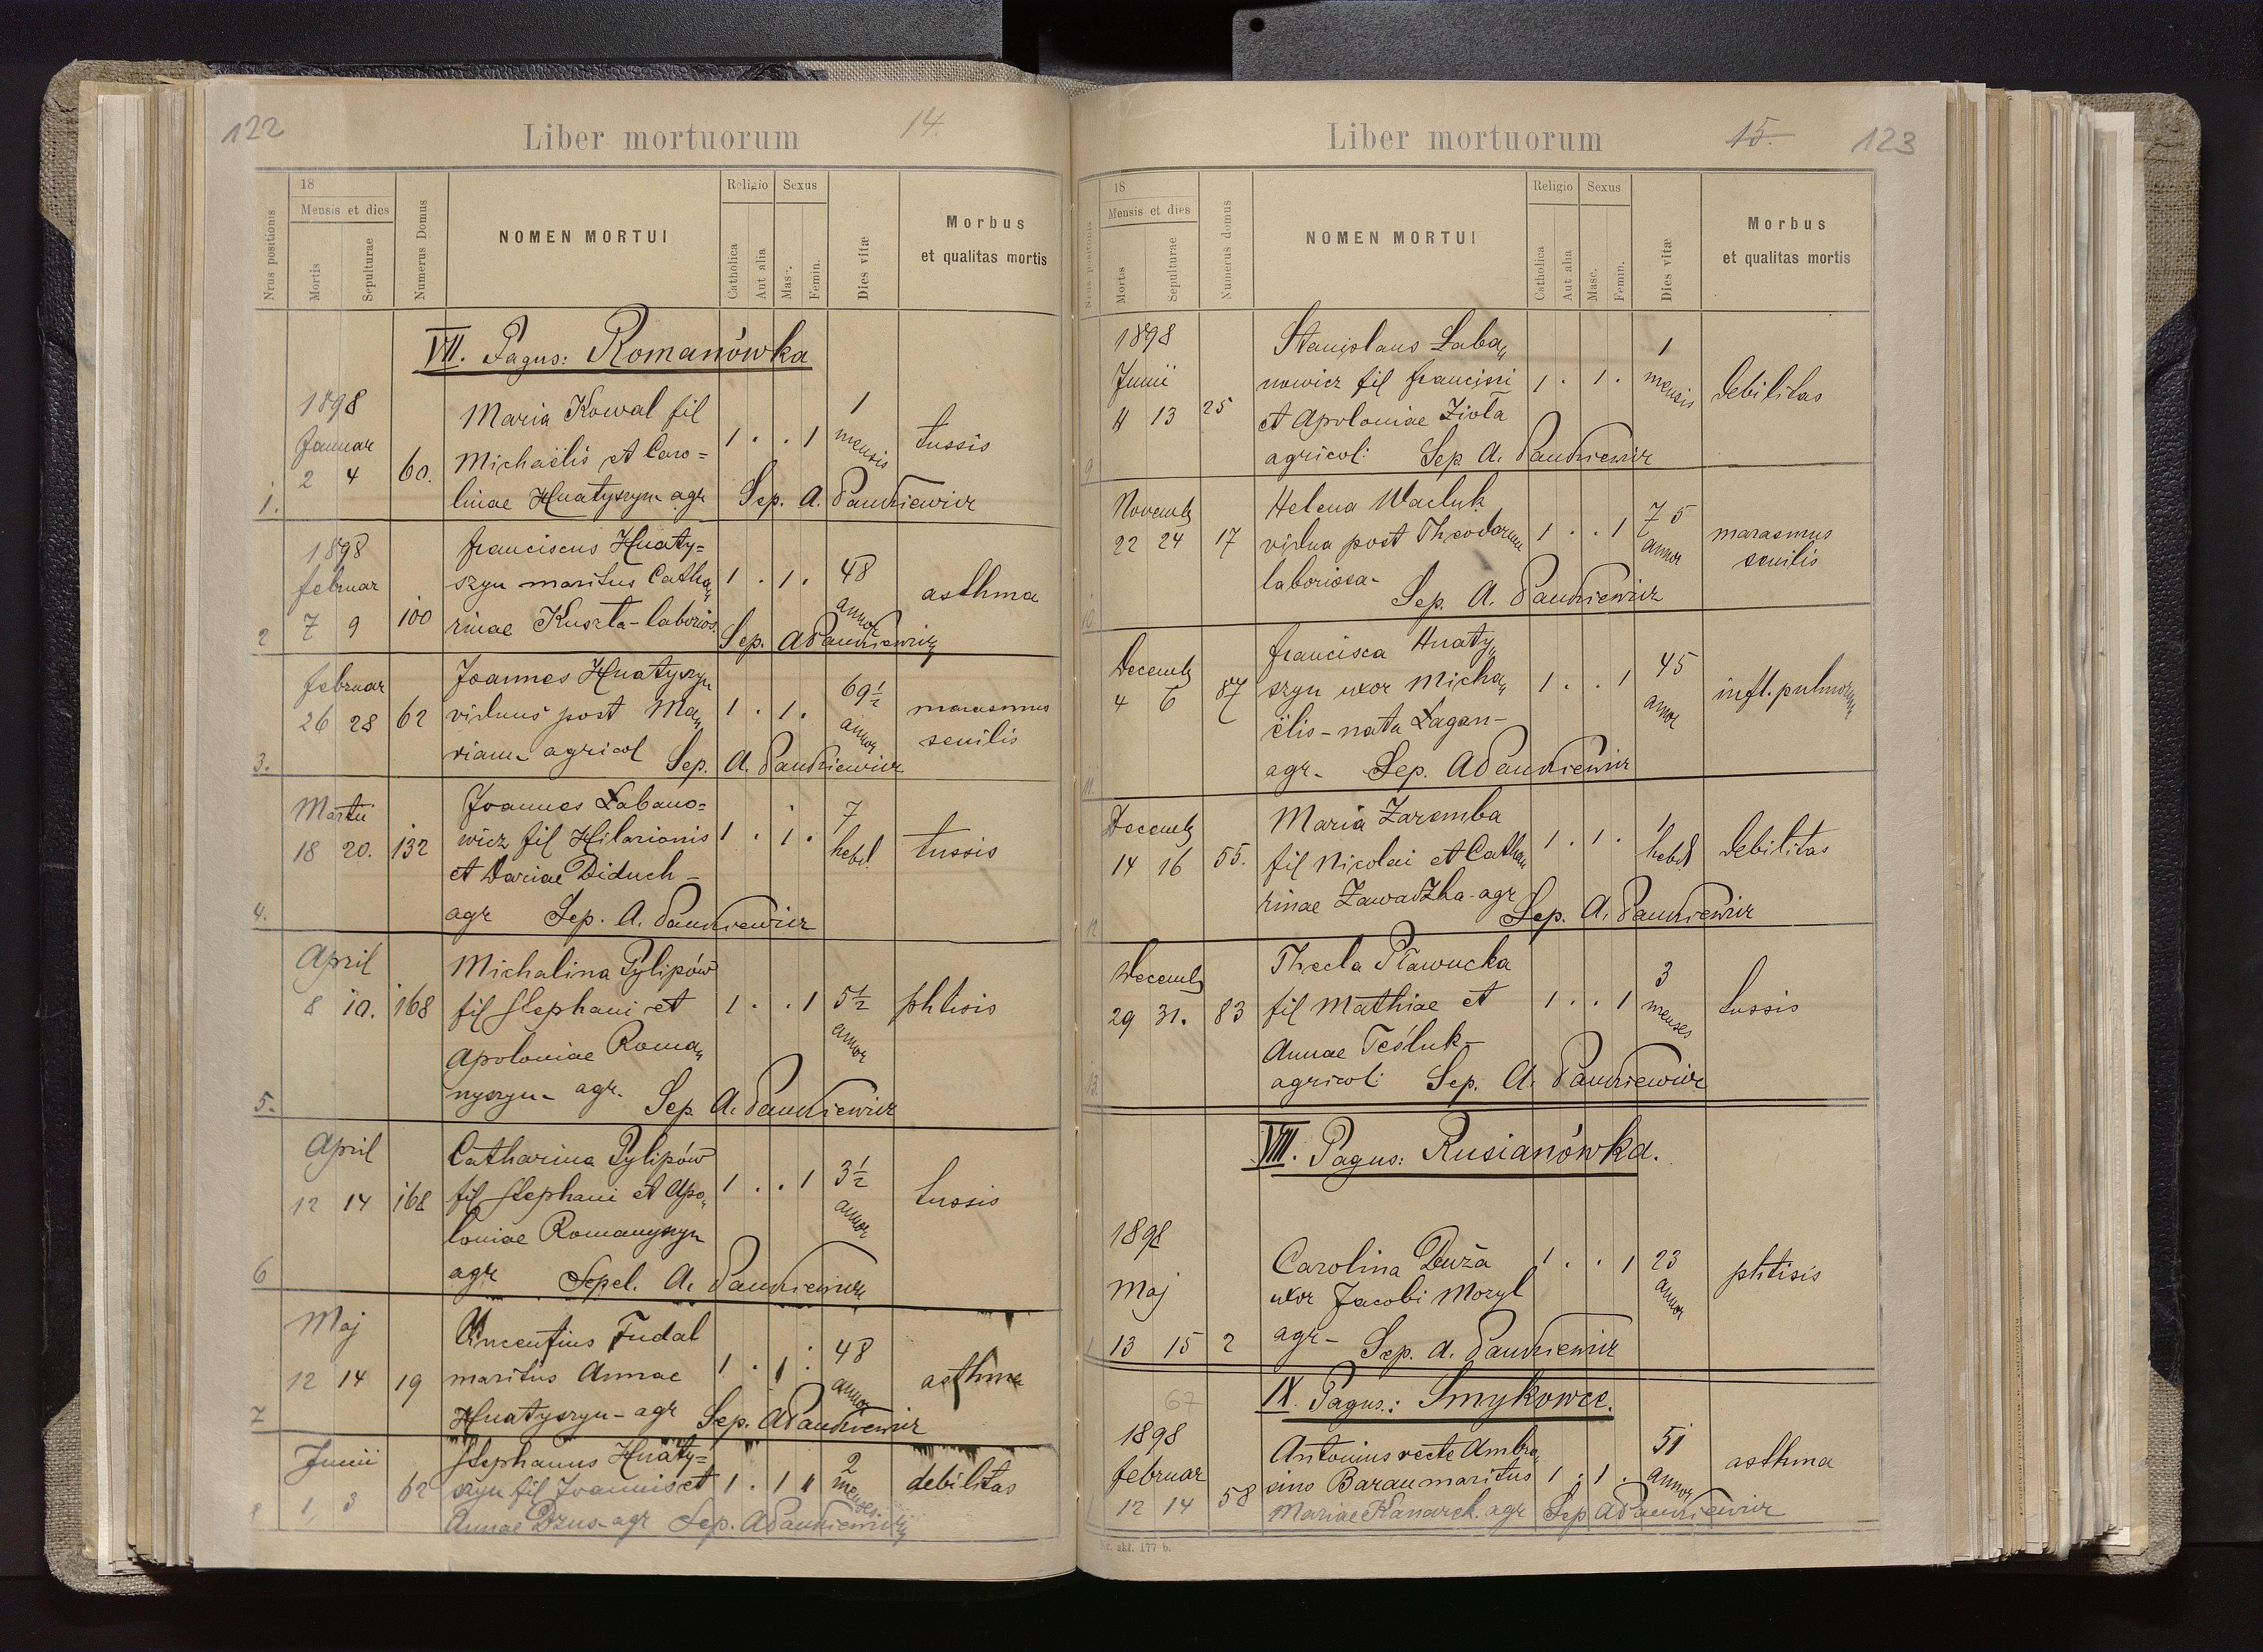 122
Liber mortuorum
14.
Nrus positionis
18
Mensis et dies
Mortis
Sepulturae
Numerus Domus
NOMEN MORTUI
Religio
Catholica
Aut alia
Sexus
Masc.
Femin.
Dies vitæ
Morbus
et qualitas mortis
VII. Pagus: Romanówka
1898
Januar
1. 2 4 60.
Maria Kowal fil
Michaëlis et Caro=
linae Hnatyszyn agr
1 . . 1
1
mensis
tussis
Sep. A. Pankiewicz
1898
februar
2 7 9 100
franciscus Hnaty=
szyn maritus Catha„
rinae Kuszta - laborios.
1 . 1 .
48
annor
asthma
Sep. A Pankiewicz
februar
3. 26 28 62
Joannes Hnatyszyn
viduus post Ma„
riam agricol
1 . 1 .
69½
annor
marasmus
senilis
Sep. A. Pankiewicz
Martii
4. 18 20. 132
Joannes Łabano=
wicz fil Hilarionis
et Dariae Diduch -
agr
1 . 1 .
7
hebd.
tussis
Sep. A. Pankiewicz
April
5. 8 10. 168
Michalina Pylipów
fil Stephani et
Apoloniae Roma„
nyszyn - agr.
1 . . 1
5½
annor
phtisis
Sep. A. Pankiewicz
April
6 12 14 168
Catharina Pylipów
fil Stephani et Apo„
loniae Romanyszyn
agr
1 . . 1
3½
annor
tussis
Sepel. A. Pankiewicz
Maj
7 12 14 19
Vincentius Fudal
maritus Annae
Hnatyszyn - agr
1 . 1 .
48
annor
asthma
Sep. A Pankiewicz
Junii
8 1 3 62
Stephanus Hnaty=
szyn fil Joannis et
Annae Dzus - agr
1 . 1 .
2
menses
debilitas
Sep. A Pankiewicz
Liber mortuorum
15.
123
Nrus positionis
18
Mensis et dies
Mortis
Sepulturae
Numerus domus
NOMEN MORTUI
Religio
Catholica
Aut alia
Sexus
Masc.
Femin.
Dies vitæ
Morbus
et qualitas mortis
1898
Junii
9 11 13 25
Stanislaus Łaba„
nowicz fil francisci
et Apoloniae Zioła
agricol:
1 . 1 .
1
mensis
debilitas
Sep. A. Pankiewicz
Novemb
10 22 24 17
Helena Wacluk
vidua post Theodorum
laboriosa -
1 . . 1
75
annor
marasmus
senilis
Sep. A. Pankiewicz
Decemb
11 4 6 87
francisca Hnaty„
szyn uxor Micha„
ëlis - nata Łagan -
agr -
1 . . 1
45
annor
infl. pulmonum
Sep. A Pankiewicz
Decemb
12 14 16 55.
Maria Zaremba
fil Nicolai et Catha„
rinae Zawadzka - agr
1 . 1 .
1
hebd
debilitas
Sep. A. Pankiewicz
Decemb
13. 29 31. 83
Thecla Pławucka
fil Mathiae et
Annae Teśluk -
agricol:
1 . . 1
3
menses
tussis
Sep. A. Pankiewicz
VIII. Pagus: Rusianówka.
1898
Maj
1 13 15 2
Carolina Duża
uxor Jacobi Mozyl
agr -
1 . . 1
23
annor
phtisis
Sep. A. Pankiewicz
67
IX. Pagus.: Smykowce.
1898
februar
1 12 14 58
Antonius recte Ambro„
sius Baran maritus
Mariae Kanarek. agr
1 . 1 .
51
annor
asthma
Sep A Pankiewicz
Nr. skł. 177 b.